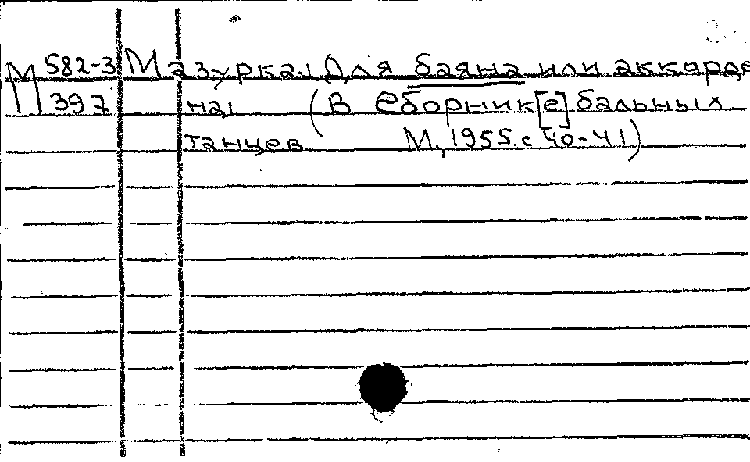 М 582-3 Мазурка. [Для баяна или аккорде
397 на] (В Сборник[е] бальных
танцев М, 1955. с 40-41)